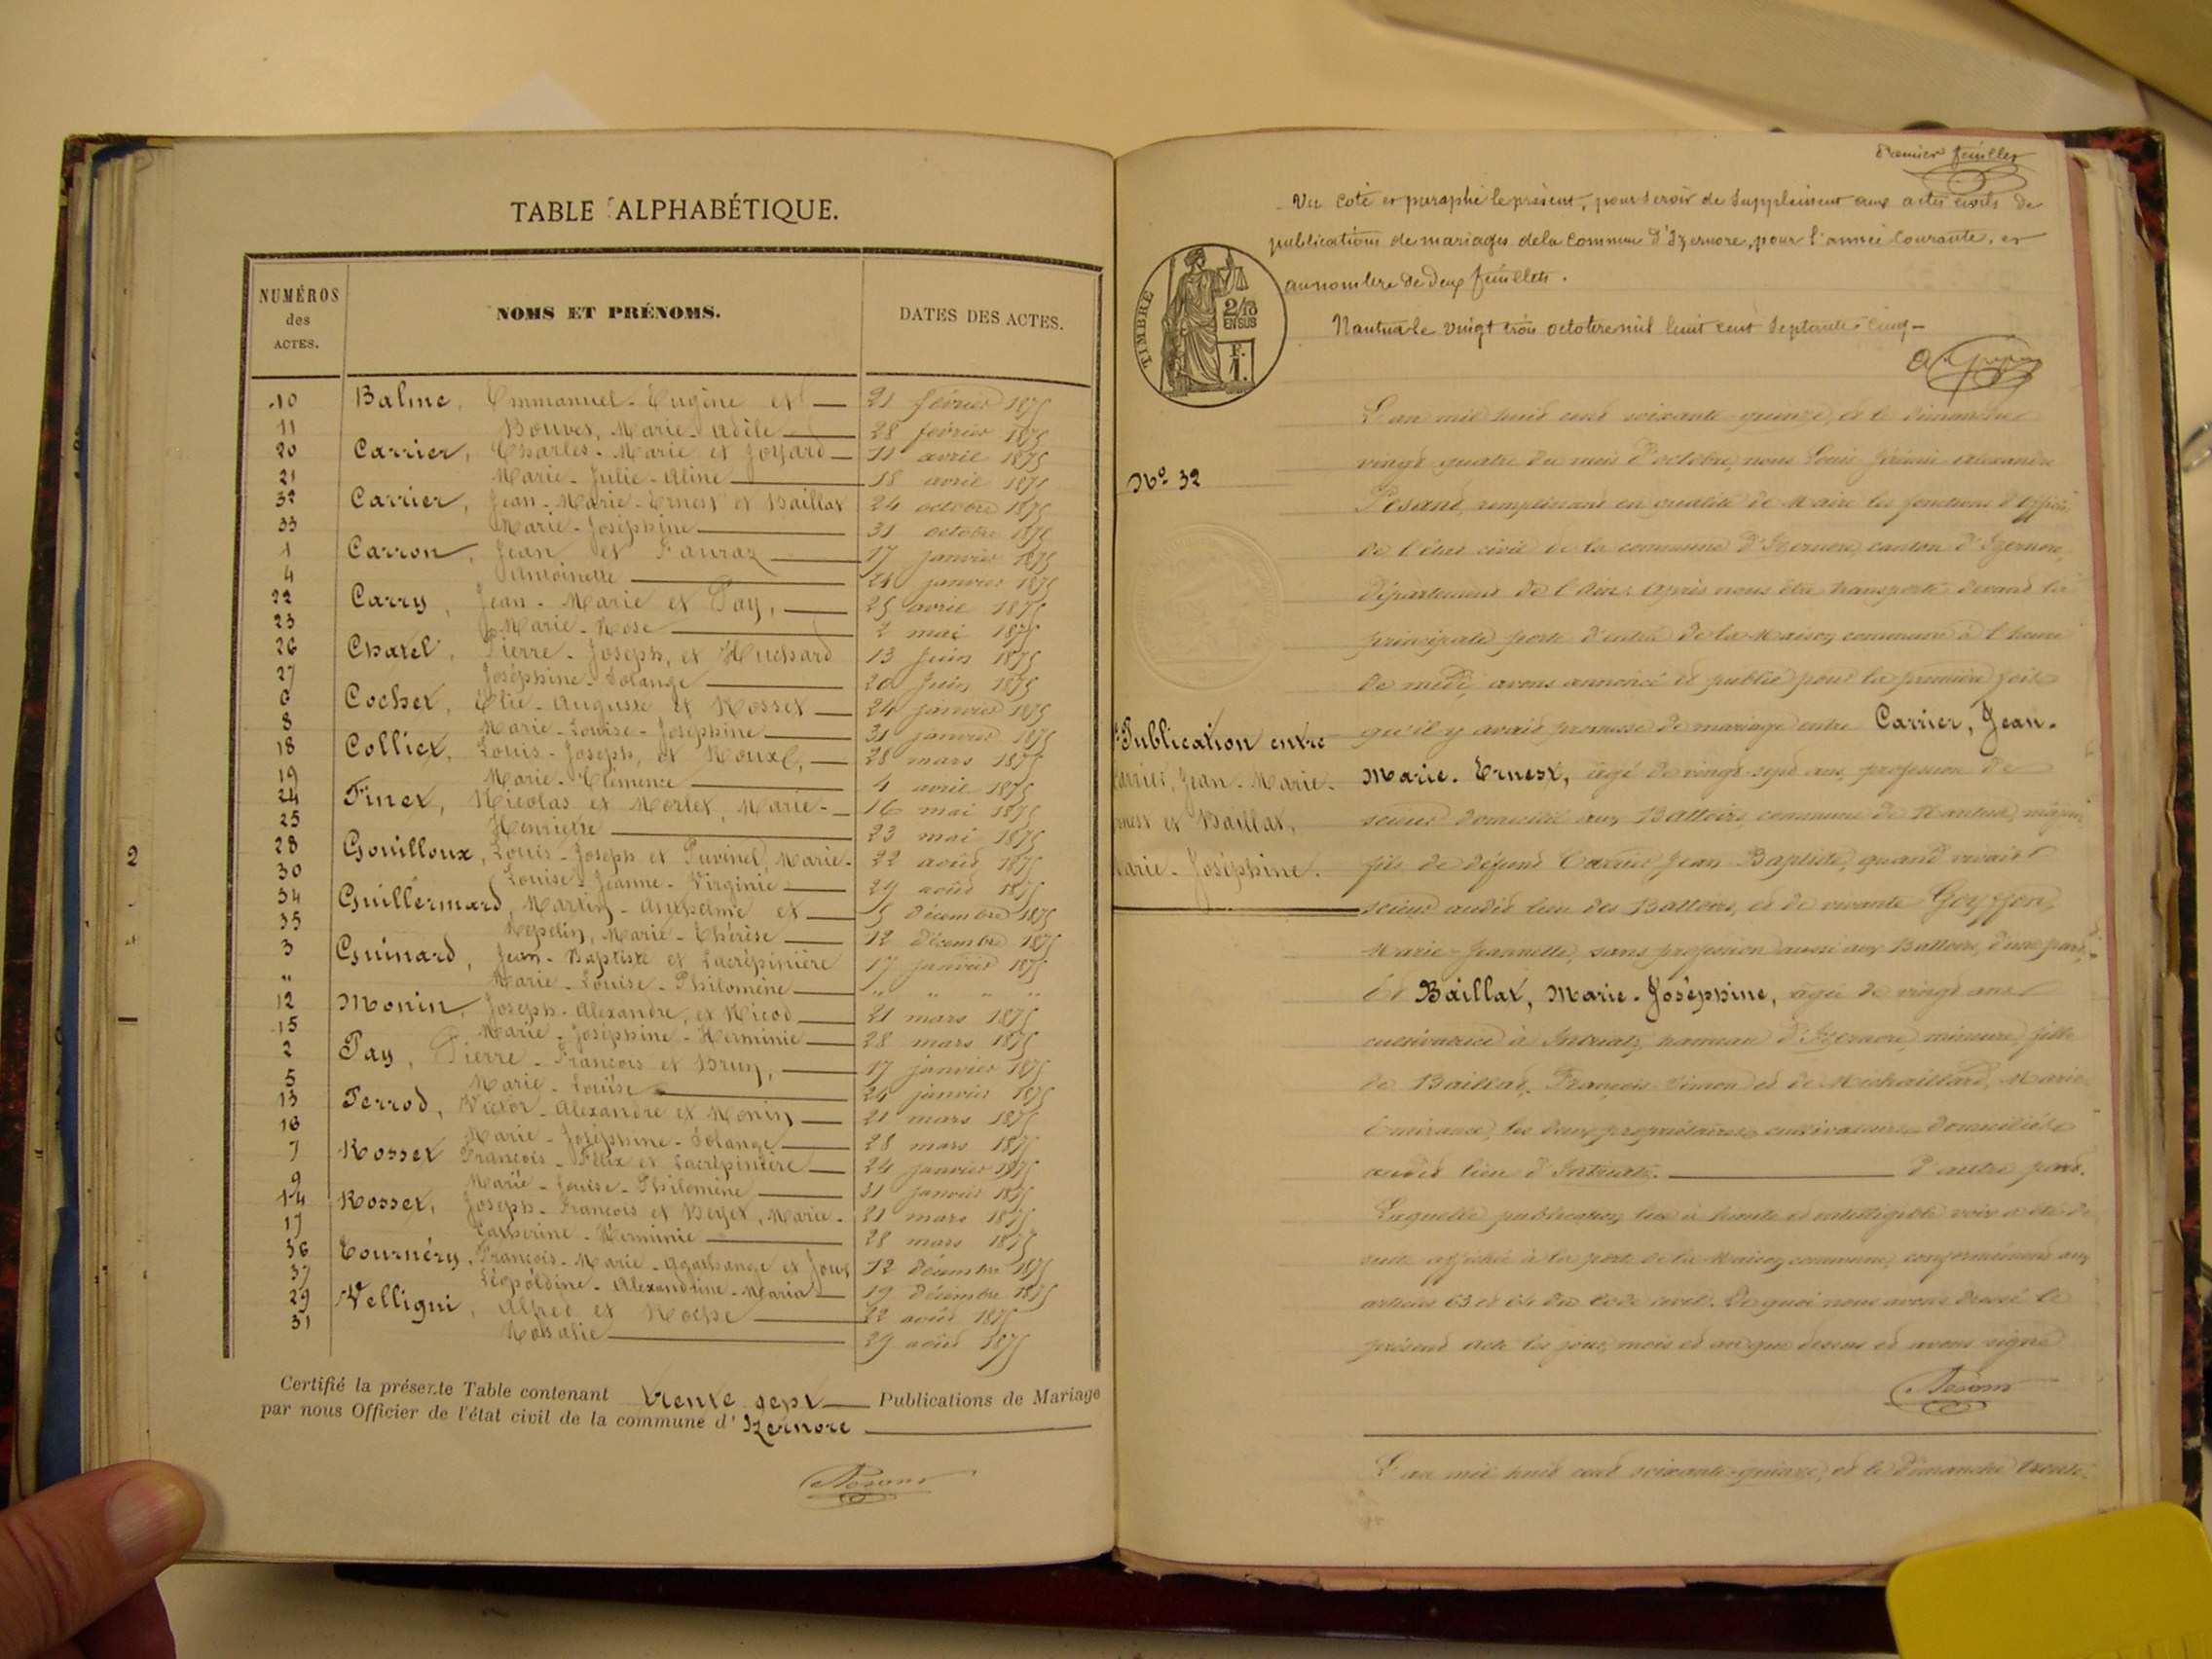 TABLE ALPHABÉTIQUE.
NUMÉROS des ACTES.
NOMS ET PRÉNOMS.
DATES DES ACTES.
10 Balme, Emmanuel-Eugène et 21 février 1875
11 Bouves, Marie-Adèle 28 février 1875
20 Carrier, Charles-Marie et Joyard 11 avril 1875
21 Marie-Julie-Aline 18 avril 1875
32 Carrier, Jean-Marie-Ernest et Baillat 24 octobre 1875
33 Marie-Joséphine 31 octobre 1875
1 Carron, Jean et Fauraz 17 janvier 1875
4 Antoinette 24 janvier 1875
22 Carry, Jean-Marie et Pay, 25 avril 1875
23 Marie-Rose 2 mai 1875
26 Chatel, Pierre-Joseph, et Huchard 13 juin 1875
27 Joséphine-Solange 20 juin 1875
6 Cochet, Élie-Auguste et Rosset 24 janvier 1875
8 Marie-Louise-Joséphine 31 janvier 1875
18 Colliet, Louis-Joseph, et 28 mars 1875
19 Marie-Clémence 4 avril 1875
24 Finet, Nicolas et Mortet, Marie- 16 mai 1875
25 Henriette 23 mai 1875
28 Gouilloux, Louis-Joseph et Puvinel, Marie- 22 août 1875
30 Louise-Jeanne-Virginie 29 août 1875
34 Guillermard, Martin-Anthelme et 5 décembre 1875
35 Marie-Thérèse 12 décembre 1875
3 Guinard, Jean-Baptiste et Lacrépinière 17 janvier 1875
" Marie-Louise-Philomène " " " "
12 Monin, Joseph-Alexandre, et Nicod 21 mars 1875
15 Marie-Joséphine-Herminie 28 mars 1875
2 Pay, Pierre-François et Brun, 17 janvier 1875
5 Marie-Louise 24 janvier 1875
13 Perrod, Victor-Alexandre et Monin 21 mars 1875
16 Marie-Joséphine-Solange 28 mars 1875
7 Rosset François-Félix et Lacrépinière 24 janvier 1875
9 Marie-Louise-Philomène 31 janvier 1875
14 Rosset, Joseph-François et Berjet, Marie- 21 mars 1875
17 Catherine-Herminie 28 mars 1875
36 Tournéry, François-Marie-Agathange et 12 décembre 1875
37 Léopoldine-Alexandrine-Maria 19 décembre 1875
29 Velligni, Alfred et Roche 22 août 1875
31 Rosalie 29 août 1875
Certifié la présente Table contenant trente sept Publications de Mariage
par nous Officier de l'état civil de la commune d'Izernore
2
Premier feuillet
Vu coté et paraphé le présent, pour servir de supplément aux actes civils de
publications de mariages de la Commune d'Izernore, pour l'année courante, et
au nombre de deux feuillets.
Nantua le vingt trois octobre mil huit cent septante-cinq-
TIMBRE 2/10 EN SUS F. 1.
L'an mil huit cent soixante-quinze, et le dimanche
vingt-quatre du mois d'octobre, nous Louis Alexandre
remplissant en qualité de Maire les fonctions d'officier
de l'état civil de la commune d'Izernore, canton d'Izernore,
département de l'Ain; après nous être transporté devant la
principale porte d'entrée de la Maison commune à l'heure
de midi, avons annoncé et publié pour la première fois
qu'il y avait promesse de mariage entre Carrier, Jean-
Marie-Ernest, âgé de vingt-sept ans, profession de
scieur domicilié aux Battoirs, commune de Nantua, majeur
fils de défunt Carrier Jean Baptiste, quand vivait
scieur audit lieu des Battoirs, et de vivante Goyffon,
Marie-Jeannette, sans profession aussi aux Battoirs, d'une part,
Et Baillat, Marie-Joséphine, âgée de vingt ans
cultivatrice à Intriat, hameau d'Izernore, mineure, fille
de Baillat, François-Simon et de Michaillard, Marie
les deux propriétaires cultivateurs domiciliés
audit lieu d'Intriat. d'autre part.
Laquelle publication lue à haute et intelligible voix a été de
suite affichée à la porte de la Maison commune, conformément aux
articles 63 et 64 du Code civil. De quoi nous avons dressé le
présent acte les jour, mois et an que dessus et avons signé
L'an mil huit cent soixante-quinze, et le dimanche trente-
No. 32
1re Publication entre
Carrier, Jean-Marie-
Ernest et Baillat,
Marie-Joséphine.